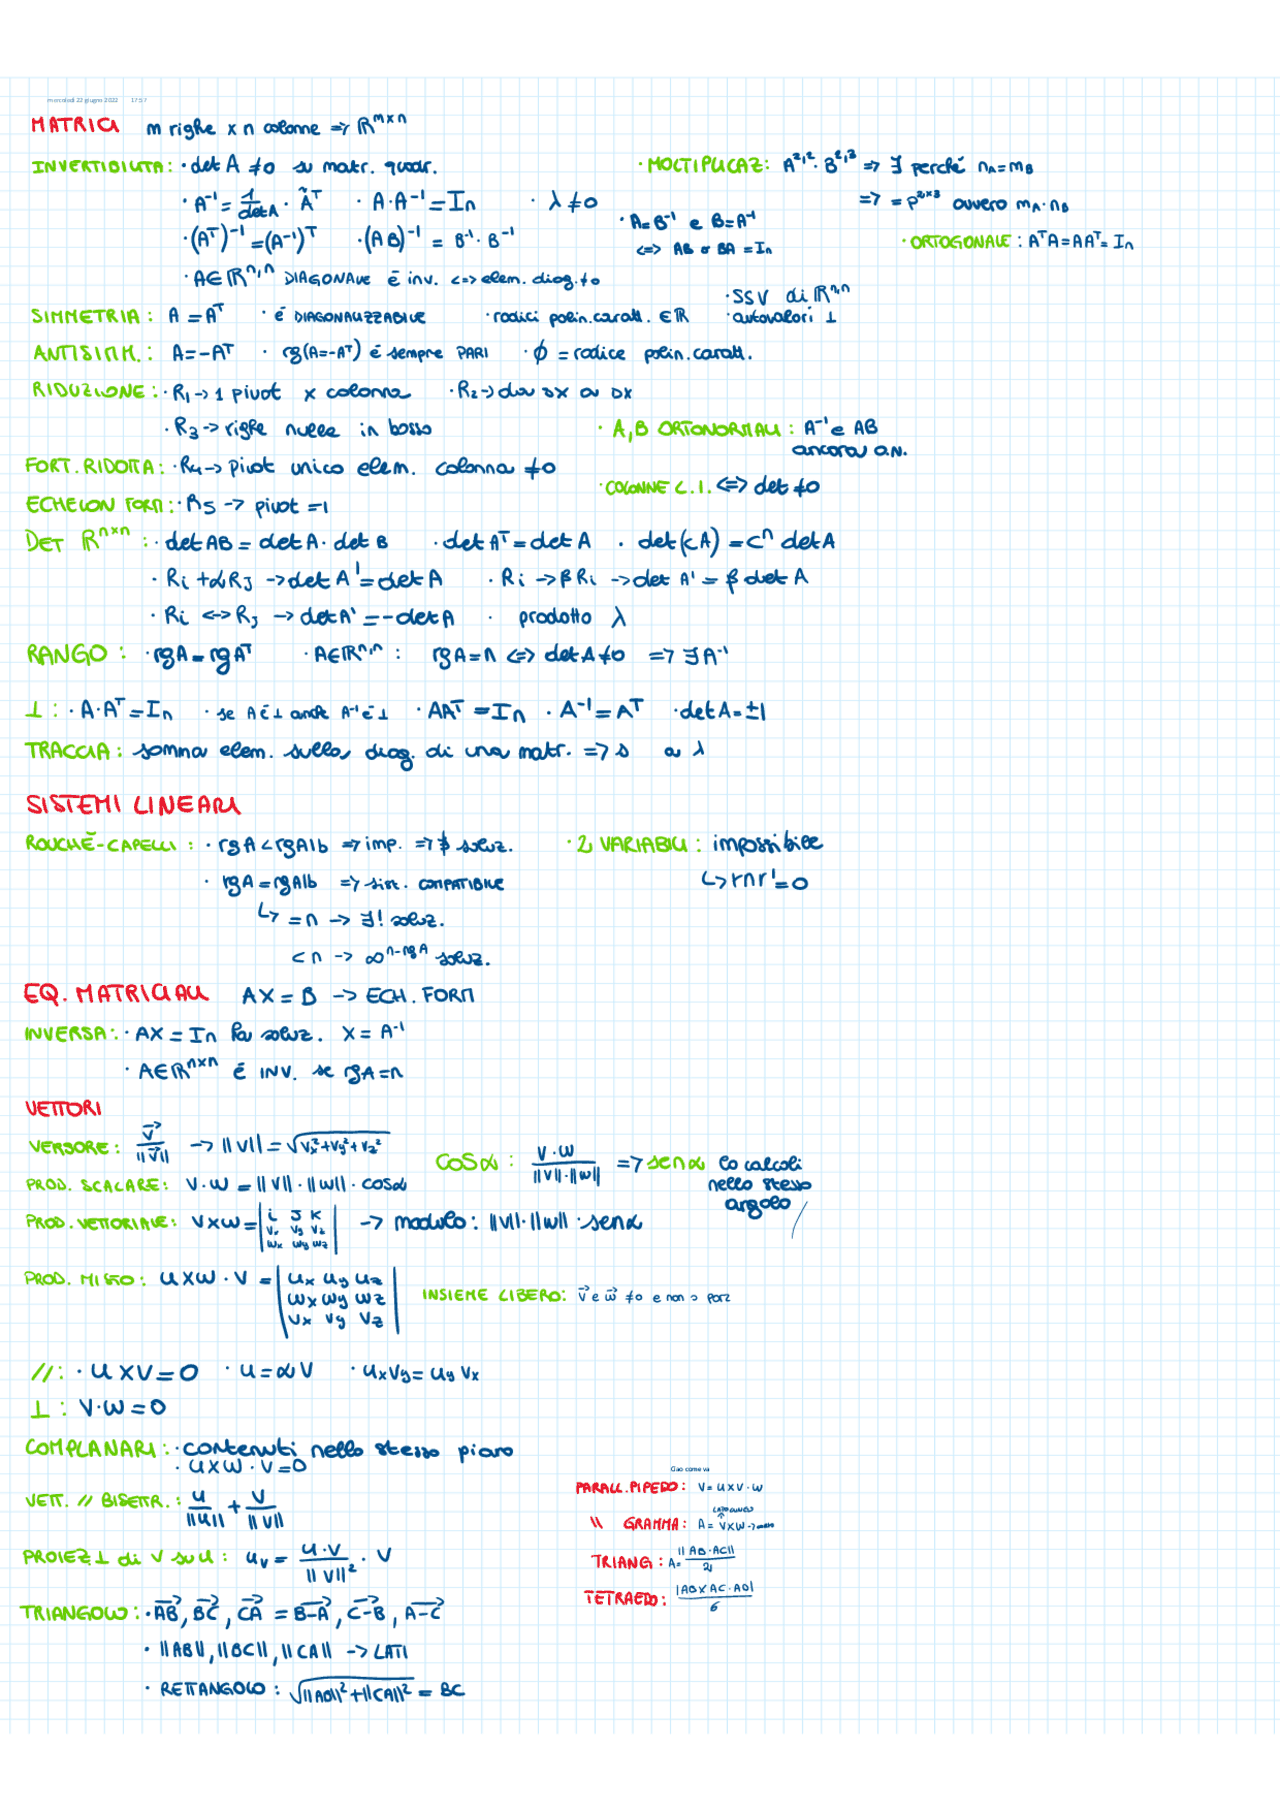 mercoledì 22 giugno 2022 17:57
MATRICI m righe x n colonne => ℝ^m×n
INVERTIBILITÀ: · det A ≠0 su matr. quadr.
· A⁻¹ = 1/detA · Ãᵀ · A·A⁻¹ = In · λ≠0
· (Aᵀ)⁻¹ = (A⁻¹)ᵀ · (AB)⁻¹ = B⁻¹·B⁻¹
· A=B⁻¹ e B=A⁻¹
<=> AB o BA = In
· A∈ℝ^n,n DIAGONALE è inv. <=> elem. diag. ≠0
· MOLTIPLICAZ: A^2,2 · B^2,3 => ∃ perché nA=mB
=> = P^2×3 ovvero mA·nB
· ORTOGONALE: AᵀA=AAᵀ=In
SIMMETRIA: A=Aᵀ · è DIAGONALIZZABILE · radici polin. caratt. ∈ℝ
· SSV di ℝ^n,n
· autovalori ⊥
ANTISIMM.: A=-Aᵀ · rg(A=-Aᵀ) è sempre PARI · ϕ = radice polin. caratt.
RIDUZIONE: · R1 -> 1 pivot x colonna · R2 -> da sx a dx
· R3 -> righe nulle in basso
· A,B ORTONORMALI: A⁻¹ e AB
ancora o.n.
FORT. RIDOTTA: · R4 -> pivot unico elem. colonna ≠0
· COLONNE L.I. <=> det ≠0
ECHELON FORM: · R5 -> pivot =1
DET ℝ^n×n: · detAB = detA · det B · det Aᵀ = det A · det(cA) = cⁿ detA
· Ri+αRJ -> det A' = det A · Ri -> βRi -> det A' = β det A
· Ri <-> RJ -> det A' = -det A · prodotto λ
RANGO: · rgA = rgAᵀ · A∈ℝ^n,n: rgA=n <=> detA≠0 => ∃A⁻¹
⊥: · A·Aᵀ=In · se A è ⊥ anche A⁻¹ è ⊥ · AAᵀ=In · A⁻¹=Aᵀ · detA=±1
TRACCIA: somma elem. sulla diag. di una matr. => s a λ
SISTEMI LINEARI
ROUCHÉ-CAPELLI: · rgA<rgA|b => imp. => ∄ soluz. · 2 VARIABILI: impossibile
· rgA=rgA|b => sist. COMPATIBILE ↳ r∩r'=0
↳ =n -> ∃! soluz.
<n -> ∞^n-rgA soluz.
EQ. MATRICIALI AX=B -> ECH. FORM
INVERSA: · AX=In ha soluz. X=A⁻¹
· A∈ℝ^n×n è INV. se rgA=n
VETTORI
VERSORE: v⃗/||v⃗|| -> ||v||=√(vx²+vy²+vz²)
COSα: v·w/||v||·||w|| => senα lo calcoli
nello stesso
angolo
PROD. SCALARE: v·w = ||v||·||w||·cosα
PROD. VETTORIALE: v×w = |i J K / vx vy vz / wx wy wz| -> modulo: ||v||·||w||·senα
PROD. MISTO: u×w·v = |ux uy uz / wx wy wz / vx vy vz|
INSIEME LIBERO: v⃗ e w⃗ ≠0 e non
//: · u×v=0 · u=αv · uxvy=uyvx
⊥: v·w=0
COMPLANARI: · contenuti nello stesso piano
· u×w·v=0
VETT. // BISETTR.: u/||u|| + v/||v||
PROIEZ. ⊥ di v su u: uv = u·v/||v||² · v
TRIANGOLO: · AB⃗, BC⃗, CA⃗ = B-A, C-B, A-C
· ||AB||, ||BC||, ||CA|| -> LATI
· RETTANGOLO: √(||AB||²+||CA||²) = BC
Ciao come va
PARALL.PIPEDO: V = u×v·w
\\ GRAMMA: A = v×w ->
TRIANG: A= ||AB·AC||/2
TETRAEDO: |AB×AC·AD|/6